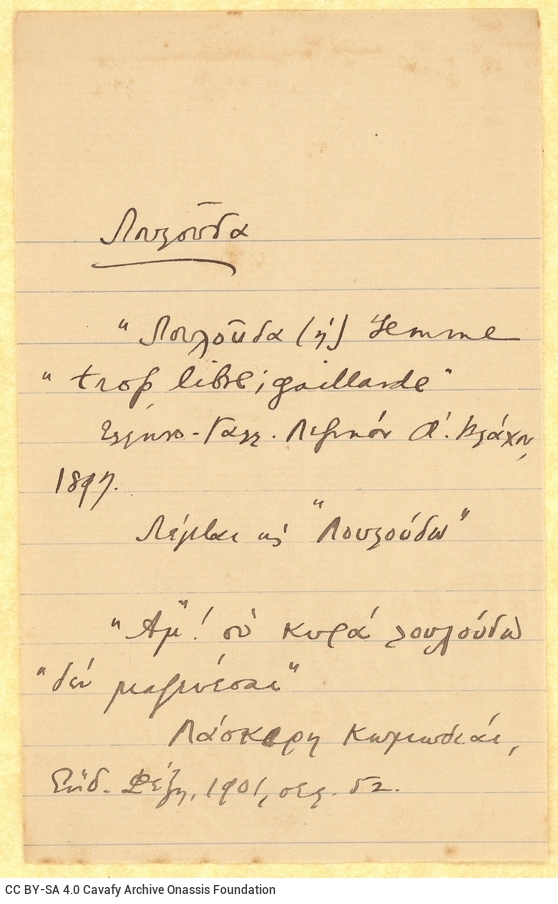 Λουλοῦδα
"Λουλοῦδα (ἡ) femme
"trop libre; gaillarde"
Ἑλληνο-Γαλλ. Λεξικόν Ἀ. Βλάχου,
1897.
Λέγεται κ᾽ "Λουλούδω"
"Ἄμ! σὺ κυρά λουλούδω
"δὲν μαζεύεσαι"
Λάσκαρη Κωμωδίαι,
Ἔκδ. Φέξη, 1901, σελ. 52.
CC BY-SA 4.0 Cavafy Archive Onassis Foundation